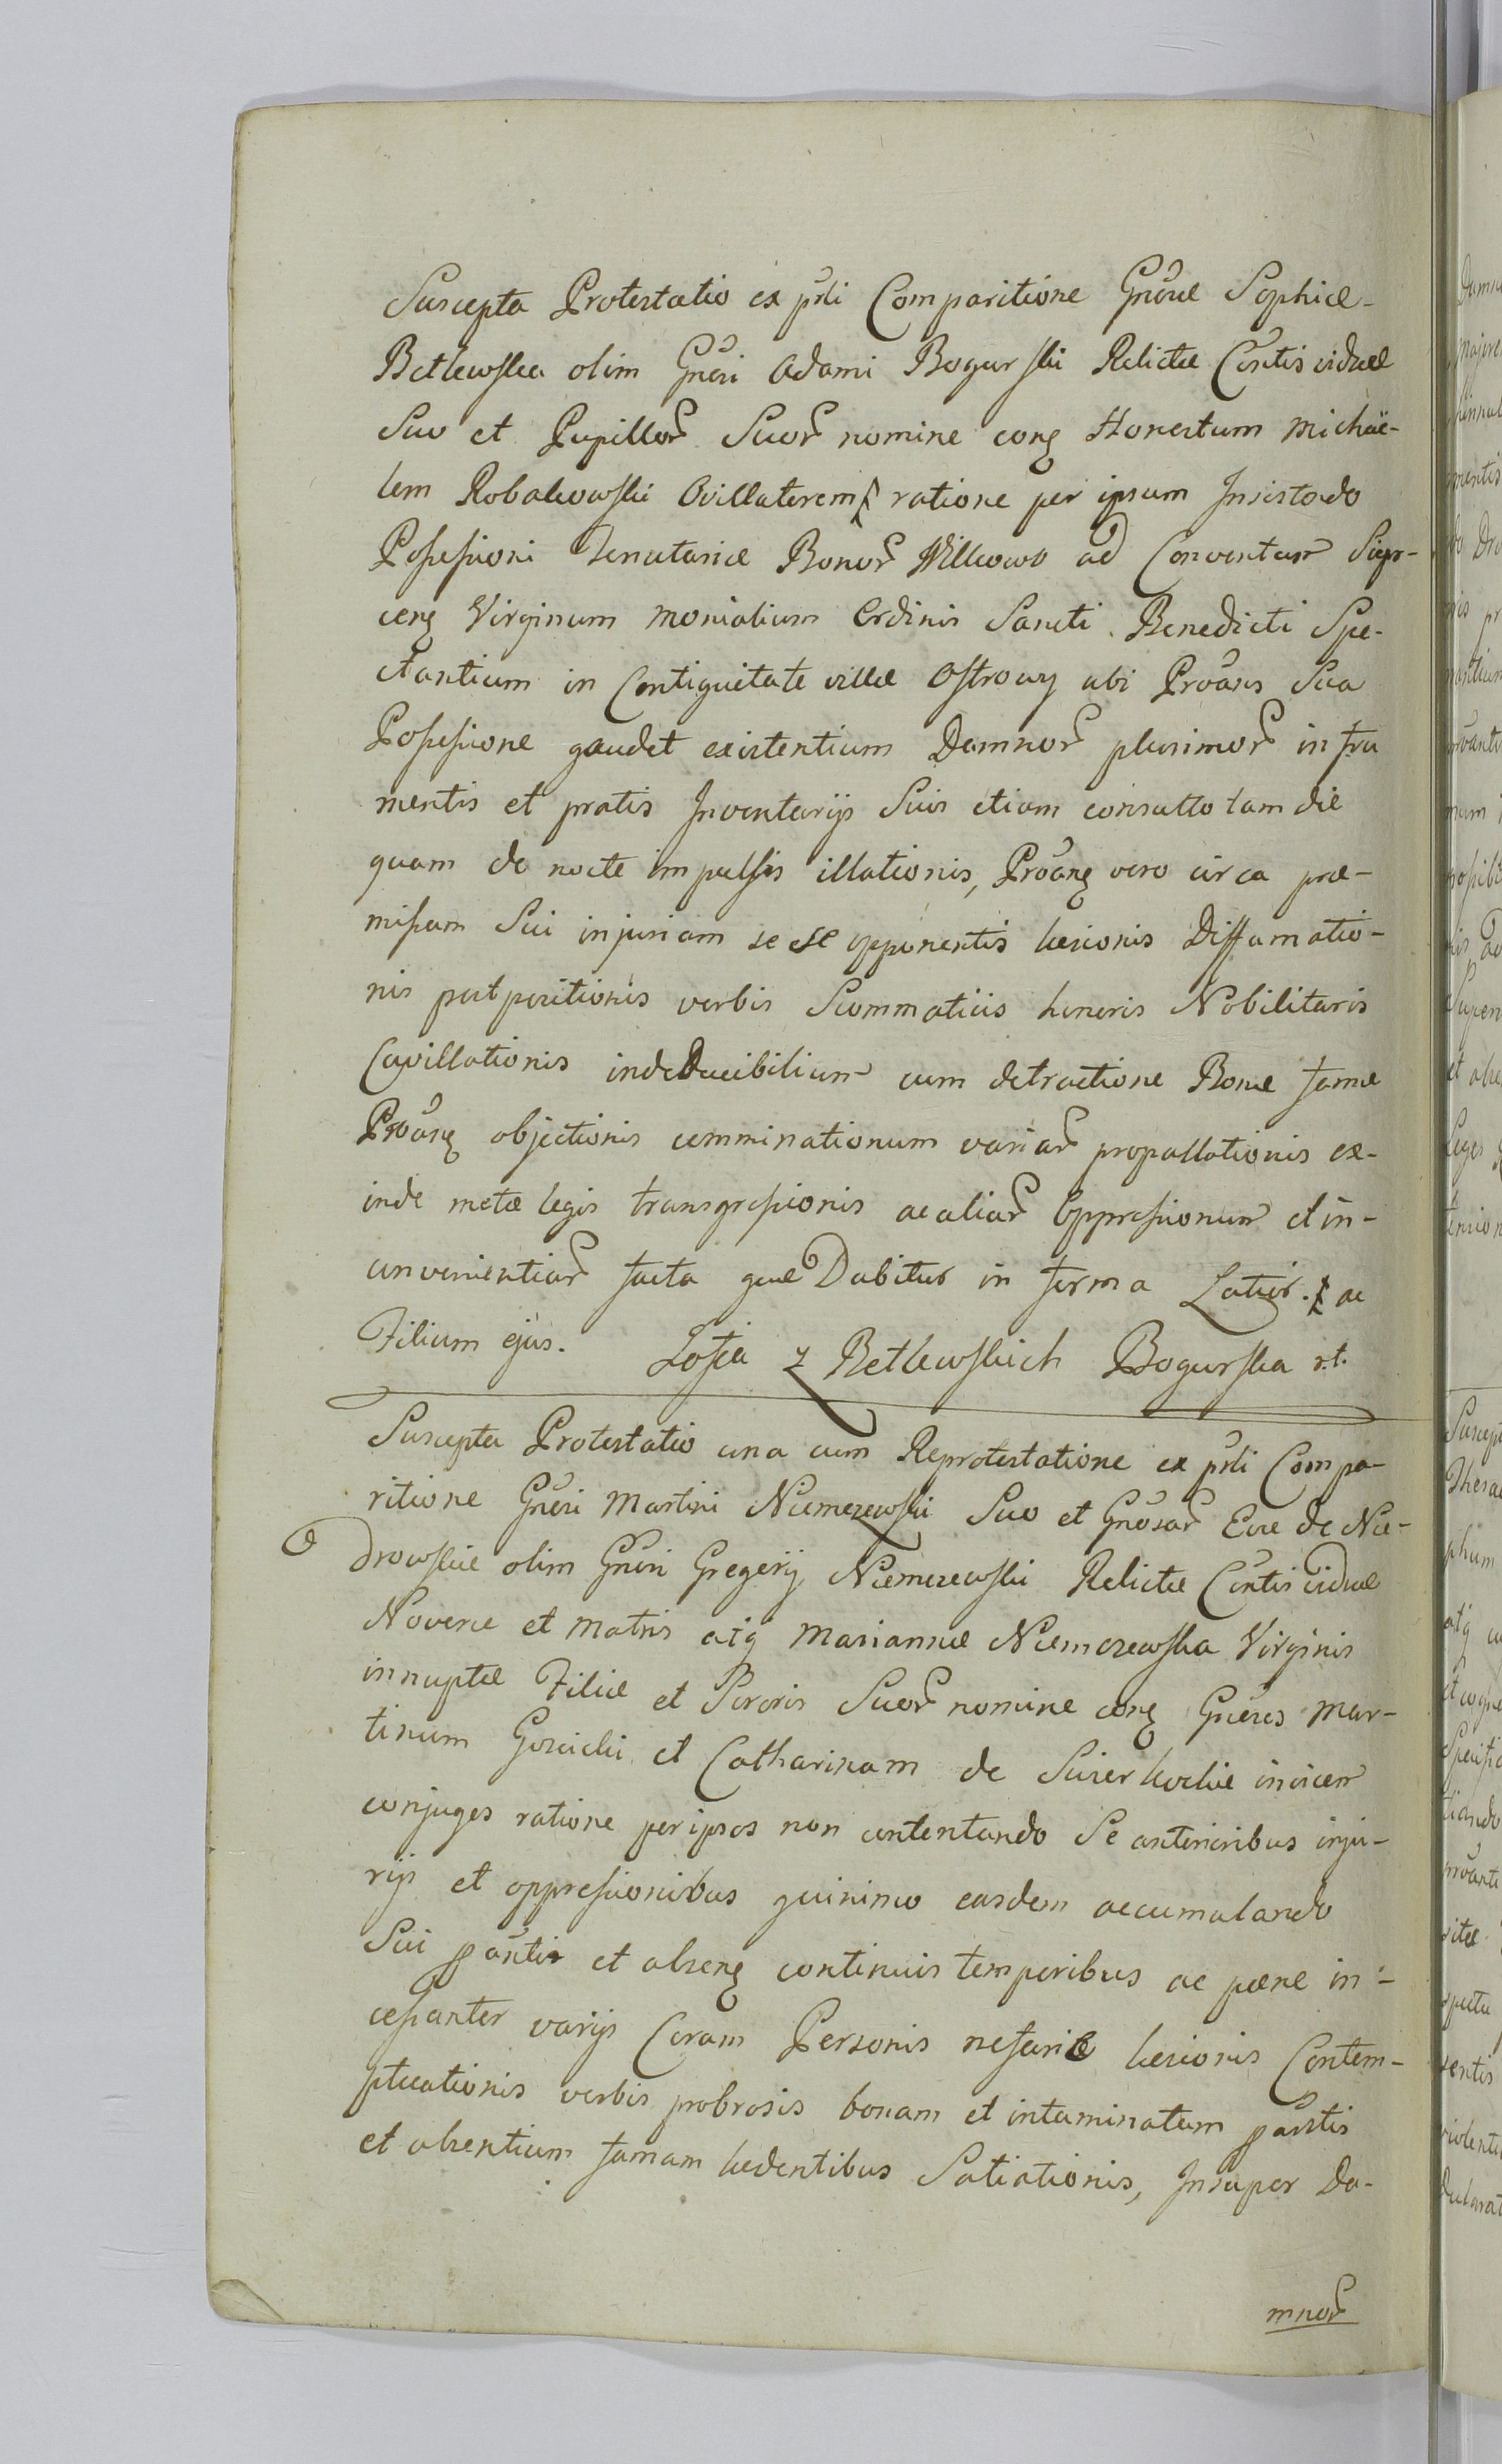 Suscepta Protestatio ex prli Comparitione Gnosae Sophiae
Betlewska olim Gnosi Adami Bogurski Relictae Consortis viduae
Suo et Pupillor Suor nomine cong Honestum Michäe-
lem Robakowski Ovillatorem ratione per ipsum Insistendo
Possessioni Tenutariae Bonor Wilkowo ad Conventum Sier-
ceng Virginum Monialium Ordinis Sancti Benedicti Spe-
ctantium in Contiguitate villae Ostrowy ubi Proans Sua
Possessione gaudet existentium Damnor plurimor in fru
mentis et pratis Inventarijs Suis etiam consulto tam die
quam de nocte impulsis illationis, Proang vero circa prae-
missam Sui injuriam se se opponentis laesionis Diffamatio-
nis postpositionis verbis Scommaticis honoris Nobilitaris
Cavillationis indeducibilium cum detractione Bonae famae
Proang objectionis comminationum variar propallationis ex-
inde metae legis transgressionis ac aliar Oppressionum et in-
convenientiar facta quae Dabitur in forma Latior. ac
Filium ejus. Zofia z Betlewskich Bogurska r.t.
Suscepta Protestatio una cum Reprotestatione ex prli Compa-
ritione Gnosi Martini Niemerzewski Suo et Gnosar Evae de Nie-
drowskie olim Gnosi Gregorij Niemerzewski Relictae Contis viduae
Novercae et Matris atq Mariannae Niemerzewska Virginis
innuptae Filiae et Sororis Suor nomine cong Gnosos Mar-
tinum Gorcicki et Catharinam de Swierkockie invicem
conjuges ratione per ipsos non contentando Se anterioribus inju-
rijs et oppressionibus quinimo easdem accumulando
Sui pantis et abseng continuis temporibus ac paene in-
cessanter varijs Coram Personis nefarie laesionis Contem-
ptuationis verbis probrosis bonam et intaminatam pantis
et absentium famam laedentibus Satiationis, Insuper Da-
mnor